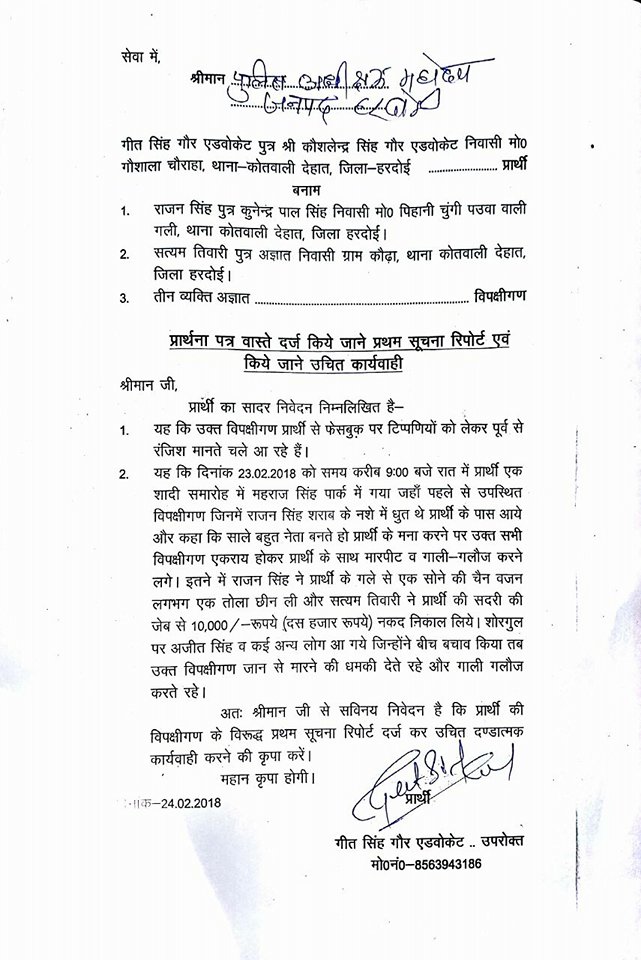 सेवा में,
श्रीमान पुलिस अधीक्षक महोदय
जनपद हरदोई
गीत सिंह गौर एडवोकेट पुत्र श्री कौशलेन्द्र सिंह गौर एडवोकेट निवासी मो0
गौशाला चौराहा, थाना–कोतवाली देहात, जिला–हरदोई ........................ प्रार्थी
बनाम
1. राजन सिंह पुत्र कुनेन्द्र पाल सिंह निवासी मो0 पिहानी चुंगी पउवा वाली
गली, थाना कोतवाली देहात, जिला हरदोई।
2. सत्यम तिवारी पुत्र अज्ञात निवासी ग्राम कौढ़ा, थाना कोतवाली देहात,
जिला हरदोई।
3. तीन व्यक्ति अज्ञात ................................................................ विपक्षीगण
प्रार्थना पत्र वास्ते दर्ज किये जाने प्रथम सूचना रिपोर्ट एवं
किये जाने उचित कार्यवाही
श्रीमान जी,
प्रार्थी का सादर निवेदन निम्नलिखित है–
1. यह कि उक्त विपक्षीगण प्रार्थी से फेसबुक पर टिप्पणियों को लेकर पूर्व से
रंजिश मानते चले आ रहे हैं।
2. यह कि दिनांक 23.02.2018 को समय करीब 9:00 बजे रात में प्रार्थी एक
शादी समारोह में महराज सिंह पार्क में गया जहाँ पहले से उपस्थित
विपक्षीगण जिनमें राजन सिंह शराब के नशे में धुत थे प्रार्थी के पास आये
और कहा कि साले बहुत नेता बनते हो प्रार्थी के मना करने पर उक्त सभी
विपक्षीगण एकराय होकर प्रार्थी के साथ मारपीट व गाली–गलौज करने
लगे। इतने में राजन सिंह ने प्रार्थी के गले से एक सोने की चैन वजन
लगभग एक तोला छीन ली और सत्यम तिवारी ने प्रार्थी की सदरी की
जेब से 10,000/–रूपये (दस हजार रूपये) नकद निकाल लिये। शोरगुल
पर अजीत सिंह व कई अन्य लोग आ गये जिन्होंने बीच बचाव किया तब
उक्त विपक्षीगण जान से मारने की धमकी देते रहे और गाली गलौज
करते रहे।
अतः श्रीमान जी से सविनय निवेदन है कि प्रार्थी की
विपक्षीगण के विरूद्ध प्रथम सूचना रिपोर्ट दर्ज कर उचित दण्डात्मक
कार्यवाही करने की कृपा करें।
महान कृपा होगी।
प्रार्थी
–24.02.2018
गीत सिंह गौर एडवोकेट .. उपरोक्त
मो0नं0–8563943186